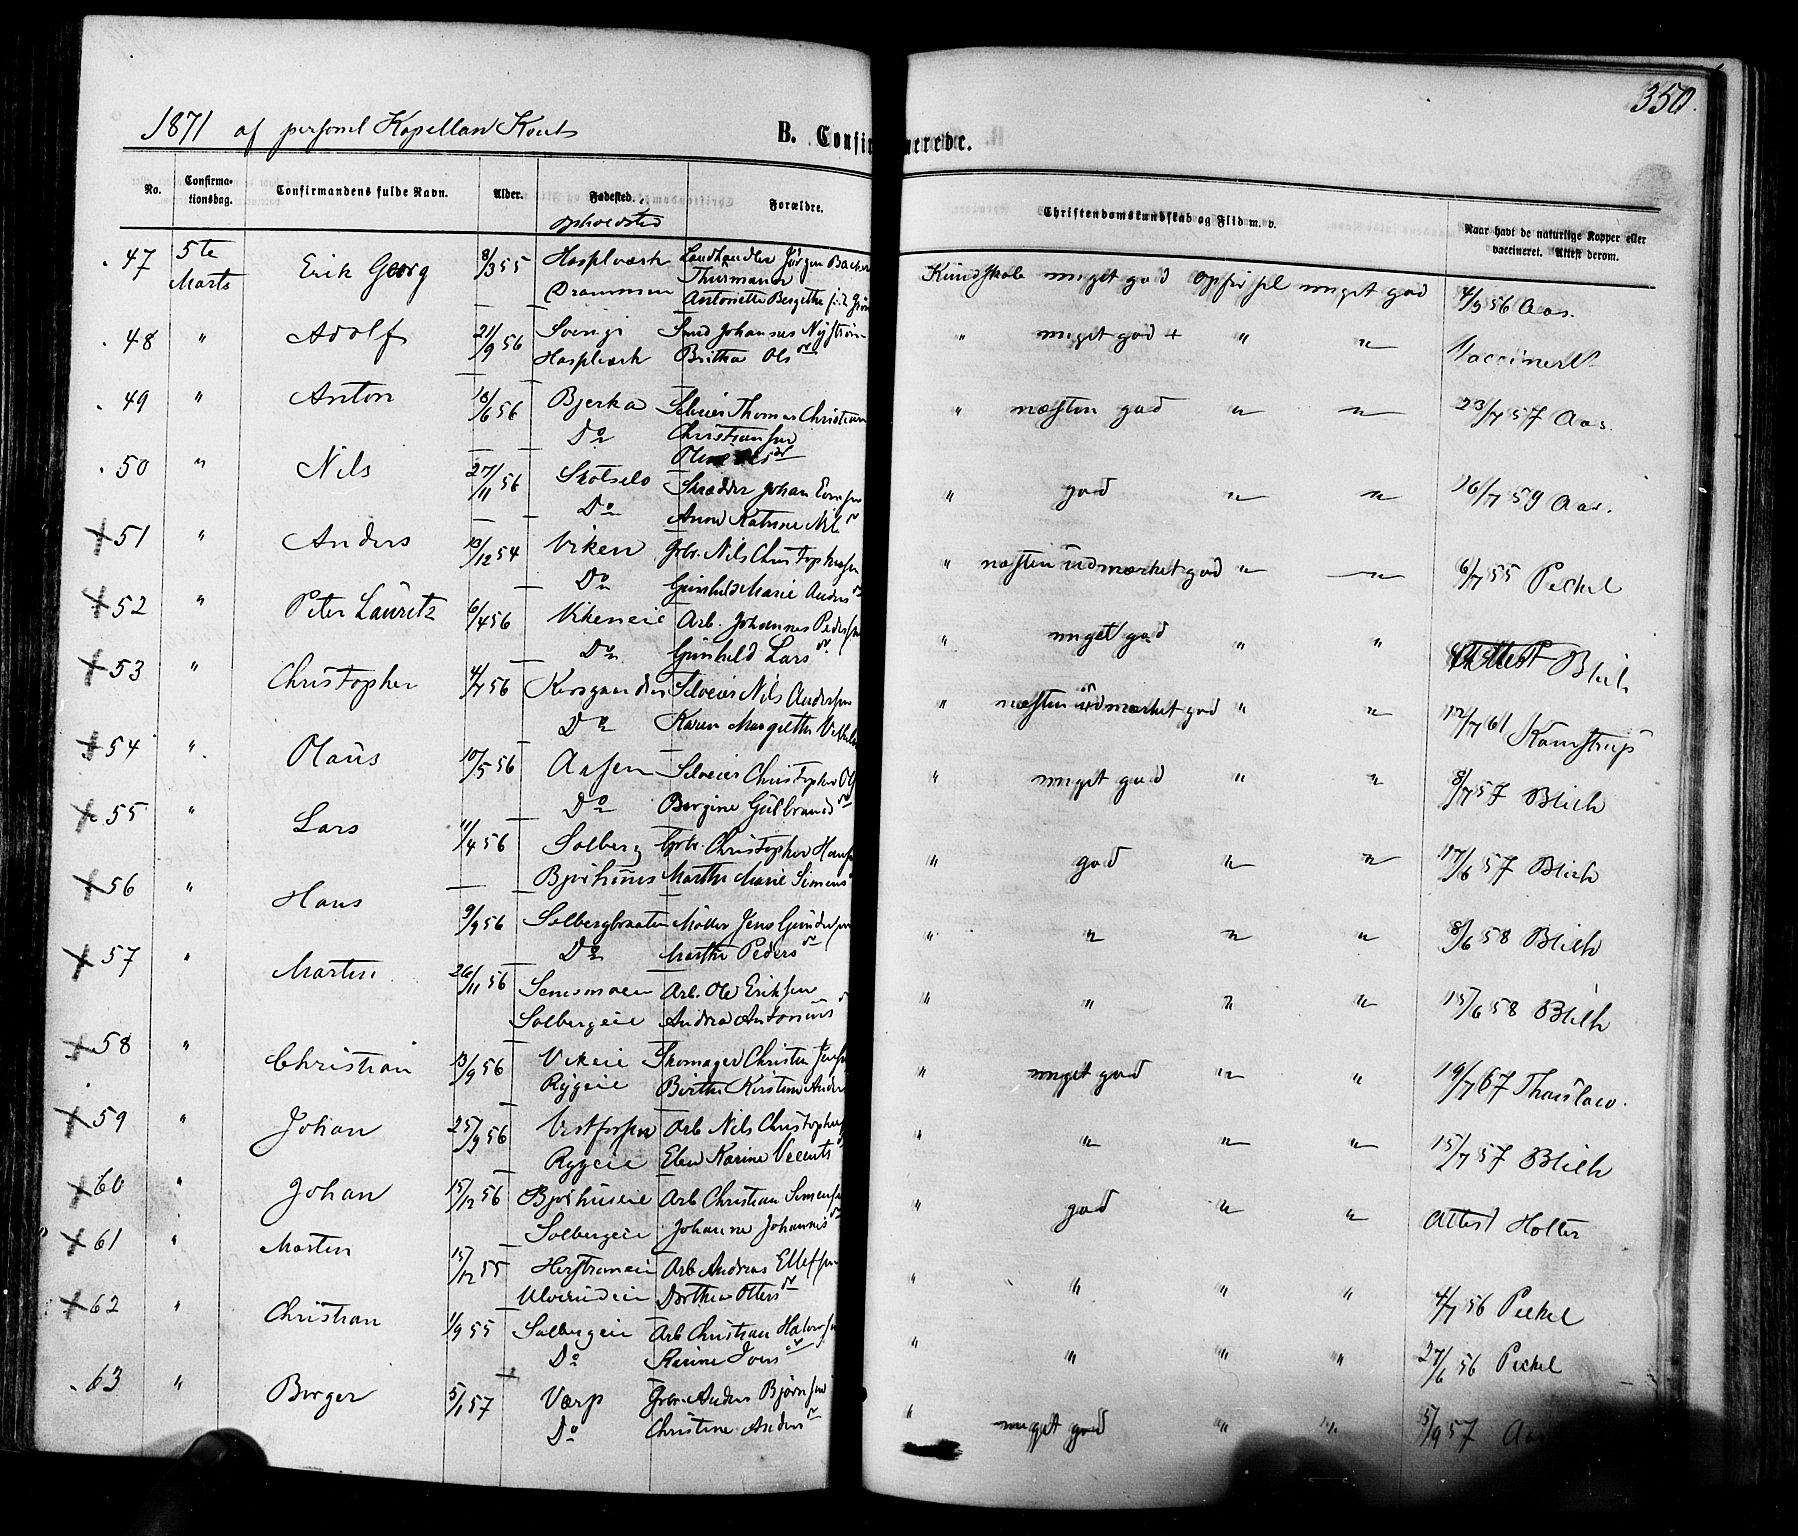 350.
1871 af personel Kapellan Kont
B. Confirmerede.
No. Confirmationsdag. Confirmandens fulde Navn. Alder. Fødested. opholdsted Forældre. Christendomskundskab og Flid m. v. Naar havt de naturlige Kopper eller vaccineret. Attest derom.
47 5te Marts Erik Georg 8/3 55 Hasselværk Landhandler Jörgen Backer Kundskab meget god Opförsel meget god 4/9 56 Aas.
Drammen Thurmann
Antonette Bergethe
48 " Adolf 21/9 56 Sverrig Smed Johannes Nyström " meget god + " " Vaccineret
Haspelværk Britha Olsdr
49 " Anton 18/6 56 Bjerka Selveier Thomas Christian " næsten god " " 23/7 57 Aas.
Do Christiansen
50 " Nils 27/11 56 Skotselv Skrædder Johan Evensen " god " " 16/7 59 Aas.
Do Anne Katrine Nilsdr
51 " Anders 13/12 54 Viken Gbr. Nils Christophersen " næsten udmærket god " " 6/7 55 Peckel
Do Gunhild Marie Andersdr
52 " Peter Lauritz 6/4 56 Vikeneie Arb. Johannes Pedersen " meget god " " Attest Blich
Do Gunhild Larsdr
53 " Christopher 4/7 56 Selveier Nils Andersen " næsten udmærket god " " 12/7 61 Kamstrup
Do Karen Margrethe
54 " Olaus 10/5 56 Aasen Selveier Christopher " meget god " " 8/7 57 Blich
Do Bergine Gulbrandsdr
55 " Lars 11/4 56 Solberg Gbr. Christopher Hansen " god " " 17/6 57 Blich
Bjørhuus Marthe Marie Simens
56 " Hans 9/9 56 Solbergbraaten Møller Jens Gundersen " " " " 8/6 58 Blich
Do Marthe Pedersdr
57 " Martin 26/11 56 Arb. Ole Eriksen " " " " 15/6 58 Blich
Solbergeie Andrea Antoniusdr
58 " Christian 13/9 56 Vikeie Skomager Christen Jensen " meget god " " 19/7 67 Thaulow.
Rygeie Birthe Kirstine Anders
59 " Johan 25/9 56 Vestfossen Arb Nils Christophersen " " " " 15/7 57 Blich
Rygeie Elen Karine Vecentsdr
60 " Johan 15/12 56 Bjørhuseie Arb Christian Simensen " god " " Attest Holter
Solbergeie Johanne Johannisdr
61 " Martin 15/12 55 Herstrømeie Arb Andreas Ellefsen " " " " 4/7 56 Peckel
Ulverudeie Dorthea Ottersdr
62 " Christian 1/9 55 Solbergeie Arb Christian Halvorsen " " " " 27/6 56 Peckel
Do Karine Iversdr
63 " Birger 5/1 57 Værp Gbr. Anders Bjørnsen " meget god " " 5/9 57 Aas
Do Christine Andersdr